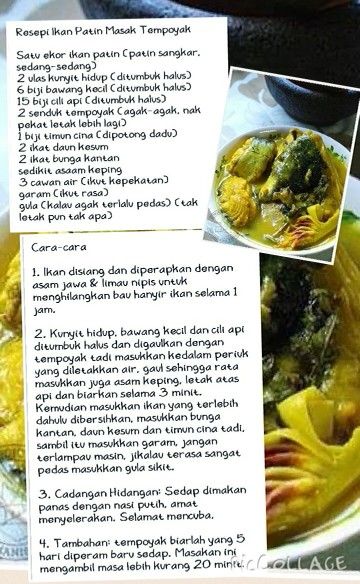 Resepi Ikan Patin Masak Tempoyak
Satu ekor ikan patin (patin sangkar,
sedang-sedang)
2 ulas kunyit hidup (ditumbuk halus)
6 biji bawang kecil (ditumbuk halus)
15 biji cili api (ditumbuk halus)
2 senduk tempoyak (agak-agak, nak
pekat letak lebih lagi)
1 biji timun cina (dipotong dadu)
2 ikat daun kesum
2 ikat bunga kantan
sedikit asaam keping
3 cawan air (ikut kepekatan)
garam (ikut rasa)
gula (kalau agak terlalu pedas) (tak
letak pun tak apa)
Cara-cara
1. Ikan disiang dan diperapkan dengan
asam jawa & limau nipis untuk
menghilangkan bau hanyir ikan selama 1
jam.
2. Kunyit hidup, bawang kecil dan cili api
ditumbuk halus dan digaulkan dengan
tempoyak tadi masukkan kedalam periuk
yang diletakkan air, gaul sehingga rata
masukkan juga asam keping, letak atas
api dan biarkan selama 3 minit.
Kemudian masukkan ikan yang terlebih
dahulu dibersihkan, masukkan bunga
kantan, daun kesum dan timun cina tadi,
sambil itu masukkan garam, jangan
terlampau masin, jikalau terasa sangat
pedas masukkan gula sikit.
3. Cadangan Hidangan: Sedap dimakan
panas dengan nasi putih, amat
menyelerakan. Selamat mencuba.
4. Tambahan: tempoyak biarlah yang 5
hari diperam baru sedap. Masakan ini
mengambil masa lebih kurang 20 minit.
COLLAGE